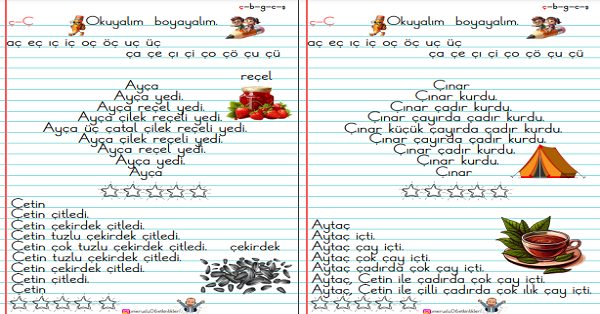 ç-b-g-c-ş
ç-Ç Okuyalım boyayalım.
aç eç ıç iç oç öç uç üç
ça çe çı çi ço çö çu çü
reçel
Ayça
Ayça yedi.
Ayça reçel yedi.
Ayça çilek reçeli yedi.
Ayça üç çatal çilek reçeli yedi.
Ayça çilek reçeli yedi.
Ayça reçel yedi.
Ayça yedi.
Ayça
Çetin
Çetin çitledi.
Çetin çekirdek çitledi.
Çetin tuzlu çekirdek çitledi.
Çetin çok tuzlu çekirdek çitledi. çekirdek
Çetin tuzlu çekirdek çitledi.
Çetin çekirdek çitledi.
Çetin çitledi.
Çetin
ç-b-g-c-ş
ç-Ç Okuyalım boyayalım.
aç eç ıç iç oç öç uç üç
ça çe çı çi ço çö çu çü
Çınar
Çınar kurdu.
Çınar çadır kurdu.
Çınar çayırda çadır kurdu.
Çınar küçük çayırda çadır kurdu.
Çınar çayırda çadır kurdu.
Çınar çadır kurdu.
Çınar kurdu.
Çınar
Aytaç
Aytaç içti.
Aytaç çay içti.
Aytaç çok çay içti.
Aytaç çadırda çok çay içti.
Aytaç, Çetin ile çadırda çok çay içti.
Aytaç, Çetin ile çilli çadırda çok ılık çay içti.